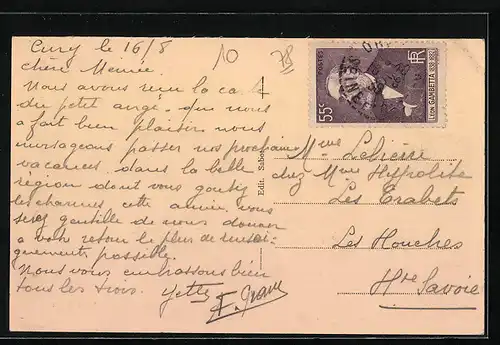 Cury le 16/8
chère Mémée.
Nous avons reçu la carte
du petit ange que nous
a fait bien plaisir. nous
envisageons passer nos prochaine
vacances dans la belle
région dont vous goutez
les charmes cette année, vous
serez gentille de nous donner
a votre retour le plus de rensei-
gnements possible.
Nous vous embrassons bien
tous les trois.
10
78
Edit. Sabot
55c
POSTES
RF
LEON GAMBETTA 1838-1882
Mme
chez Mme Hyppolite
Les
Les Houches
Hte Savoie